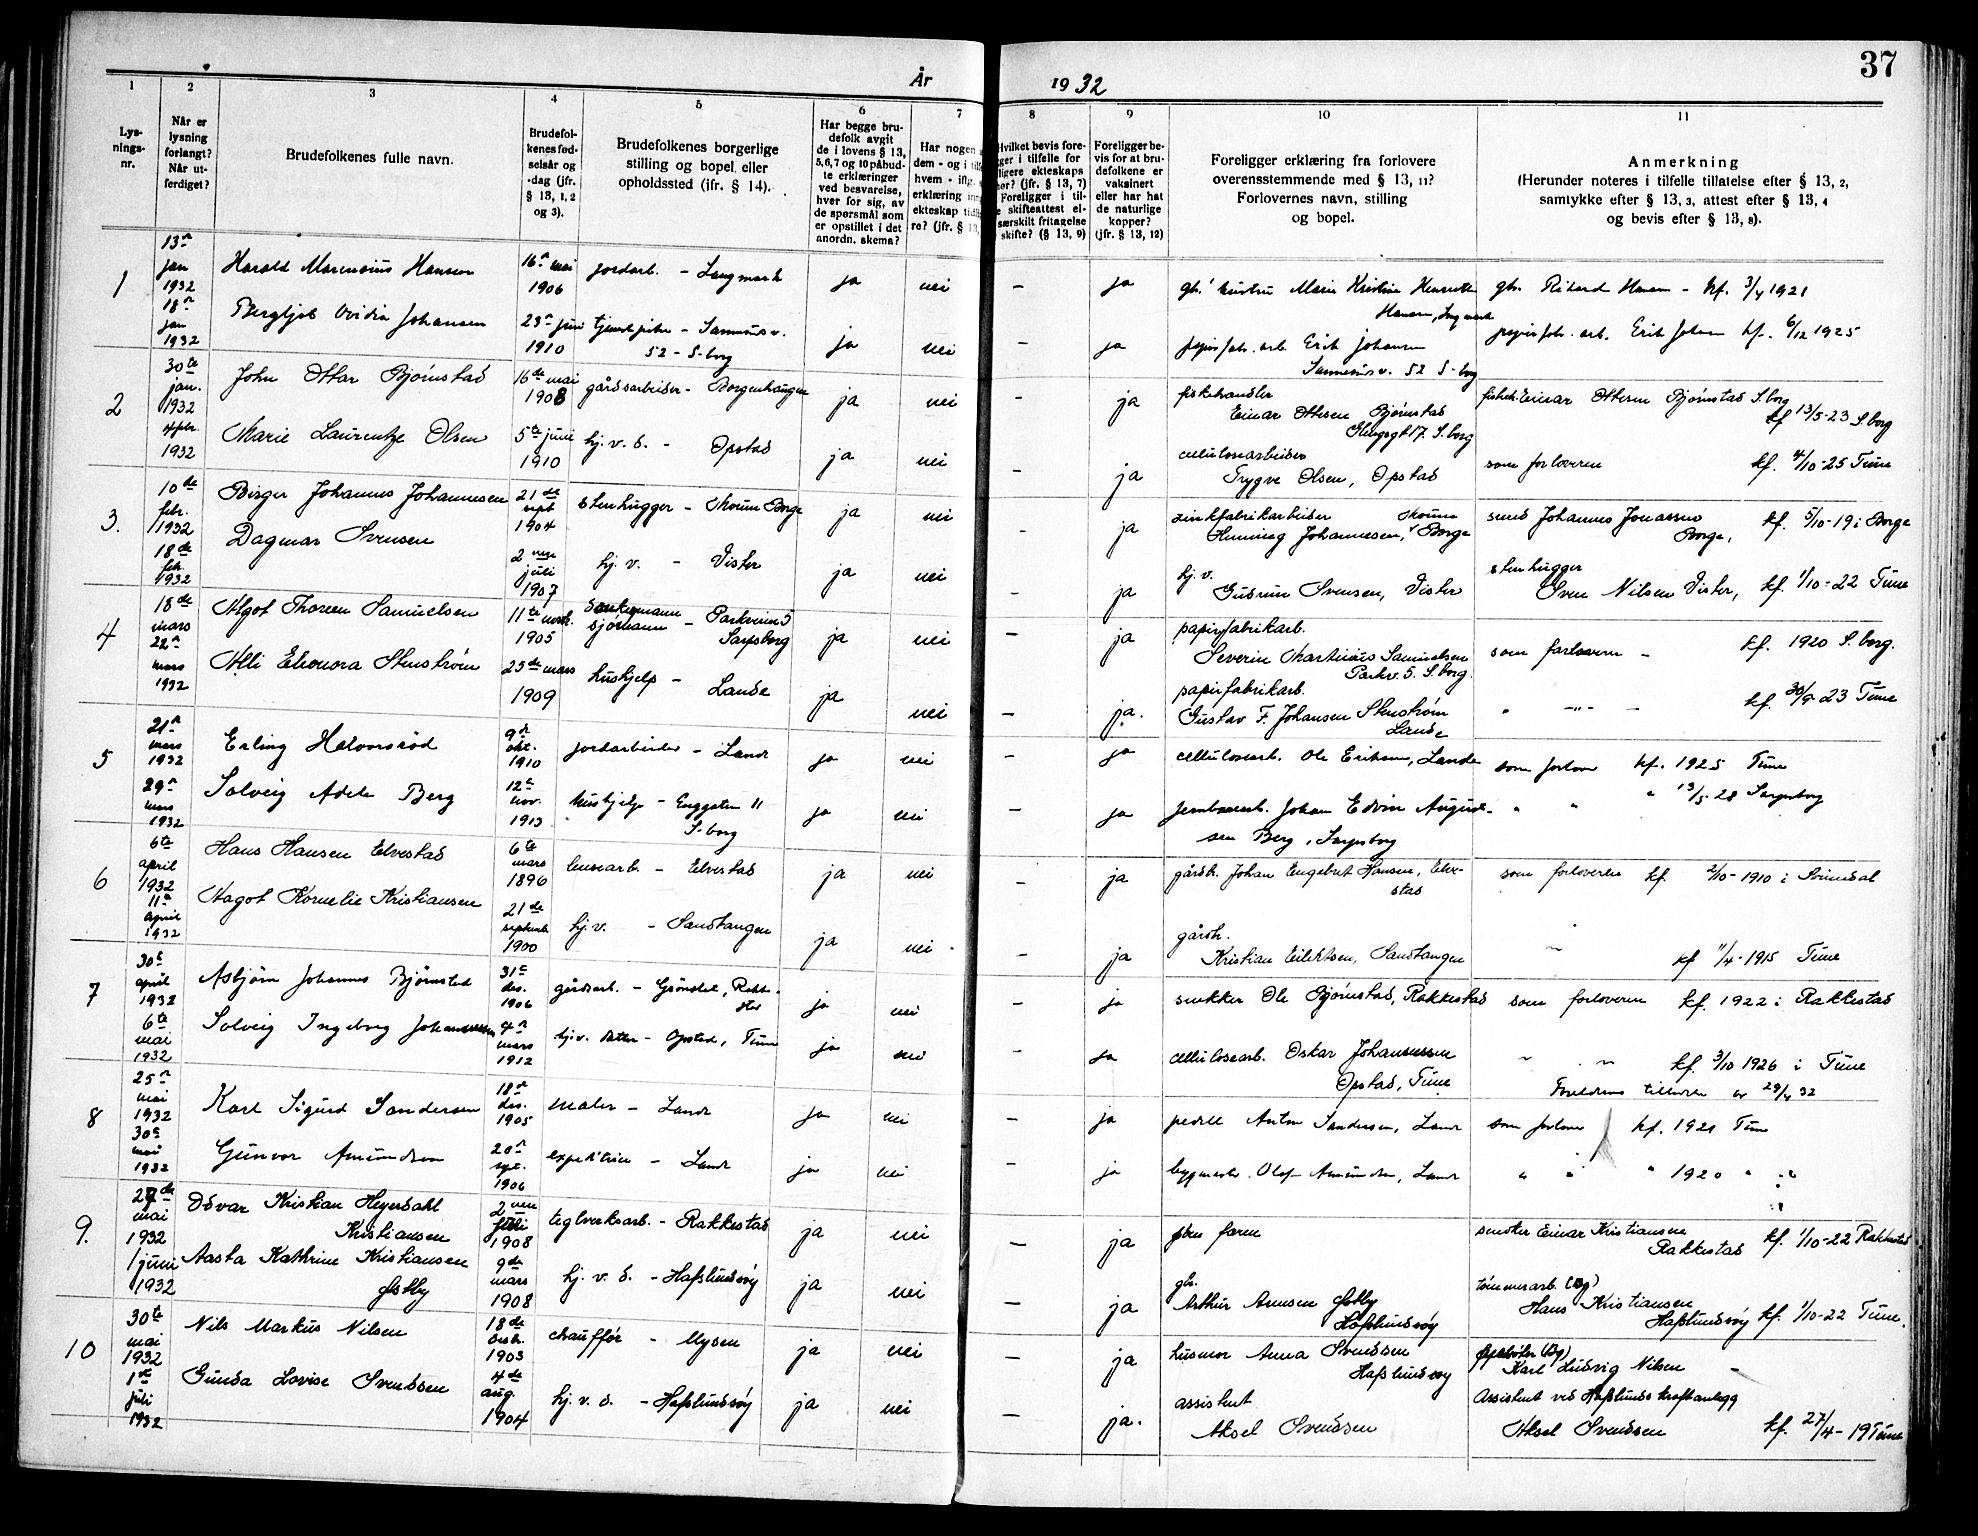 37
År 1932
1 2 3 4 5 6 7 8 9 10 11
Lys-
nings-
nr.
Når er
lysning
forlangt?
Når ut-
ferdiget?
Brudefolkenes fulle navn.
Brudefol-
kenes fød-
selsår og
-dag (jfr.
§ 13, 1, 2
og 3).
Brudefolkenes borgerlige
stilling og bopel eller
opholdssted (jfr. § 14).
Har begge bru-
defolk avgit
de i lovens § 13,
5, 6, 7 og 10 påbud-
te erklæringer
ved besvarelse,
hver for sig, av
de spørsmål som
er opstillet i det
anordn. skema?
Har nogen
dem - og i
hvem - iflg.
erklæring
ekteskap
re? (jfr. § 13,
Hvilket bevis fore-
ger i tilfelle for
ligere ekteskaps
(jfr. § 13, 7)
Foreligger i til-
e skifteattest el-
særskilt fritagelse
skifte? (§ 13, 9)
Foreligger be-
vis for at bru-
defolkene er
vaksinert
eller har hat
de naturlige
kopper?
(jfr. § 13, 12)
Foreligger erklæring fra forlovere
overensstemmende med § 13, 11?
Forlovernes navn, stilling
og bopel.
Anmerkning
(Herunder noteres i tilfelle tillatelse efter § 13, 2,
samtykke efter § 13, 3, attest efter § 13, 4
og bevis efter § 13, 8).
1
13n jan 1932 Harald Marensius Hansen 16n mai 1906 jordarb. - Langmark ja nei - ja gb. hustru Marie Kristine Henriette
Hansen, gb. Rikard Hansen - kf. 3/4 1921
18n jan 1932 Bergljot Ovidia Johansen 23n juni 1910 - Sannesv.
52 - S-borg ja nei - ja papirfab. arb. Erik Johansen
Sannesv. 52 S-borg papirfab. arb. Erik Johansen kf. 6/12 1925
2
30te jan. 1932 John Ottar Bjørnstad 16de mai 1908 gårdsarbeider - Borgenhaugen ja nei - ja fiskehandler
Einar Ottesen Bjørnstad
17. S.borg Einar Ottesen Bjørnstad S.borg
kf 13/5-23 S.borg
4 febr. 1932 Marie Laurentze Olsen 5te juni 1910 hj. v. d. - Opstad ja nei - ja cellulosearbeider
Trygve Olsen, Opstad som forloveren kf. 4/10-25 Tune
3.
10de febr. 1932 Birger Johannes Johannesen 21de sept 1904 stenhugger - Moum Borge ja nei - ja zinkfabrikarbeider Moum
Henning Johannesen, Borge smed Johannes Jonassen
Borge, kf. 5/10-19 i Borge
18de feb. 1932 Dagmar Svensen 2nen juli 1907 hj. v. - Vister ja nei ja hj. v.
Gudrun Svensen, Vister stenhugger
Sven Nilsen Vister, kf. 1/10-22 Tune
4
18de mars Algot Thoreen Samuelsen 11te mars 1905 sjømann - Parkveien 5
Sarpsborg ja nei - ja papirfabrikarb.
Severin Martinius Samuelsen
Parkv. 5. S.borg. som forloveren - kf. 1920 S.borg.
22n mars 1932 Alli Eleonora Stenstrøm 25de mars 1909 hushjelp - Lande ja nei - ja. papirfabrikarb.
Gustav F. Johansen Stenstrøm
Lande " -"- - kf. 30/9 23 Tune
5
21n mars 1932 Erling Halvorsrød 9d okt. 1910 jordarbeider - Lande ja nei - ja cellulosearb. Ole Eriksen, Lande som forlover kf. 1925 Tune
29n mars 1932 Solveig Adele Berg 12te nov. 1913 hushjelp - Enggaten 11
S-borg ja nei - ja Johan Edvin August-
sen Berg, Sarpsborg " " " 13/5-28 Sarpsborg
6
6te april 1932 Hans Hansen Elvestad 6te mars 1896 lensearb. - Elvestad ja nei - ja gårdb. Johan Engebret Hansen, Elve-
stad som forloveren kf. 2/10-1910 i Svinndal
11n april 1932 Magot Kornelie Kristiansen 21de septemb. 1900 hj. v. - Sandtangen ja nei - ja gårdb.
Kristian Eilertsen, Sandtangen " kf 11/4-1915 Tune
7
30te april 1932 Asbjørn Johannes Bjørnstad 31te des. 1906 gårdsarb. - Grønstet, Rakke-
stad ja nei - ja snekker Ole Bjørnstad, Rakkestad som forloveren kf. 1922 i Rakkestad
6te mai 1932 Solveig Ingeborg Johannessen 4n mars 1912 hj.v. datter - Opstad, Tune ja nei - ja cellulosearb. Oskar Johannessen
Opstad, Tune " " kf. 3/10 1926 i Tune
Foreldrenes 29/4 32
8
25n mai 1932 Karl Sigurd Sandersen 18n des. 1905 maler - Lande ja nei - ja pedell Anton Sandersen, Lande som forlover kf. 1921 Tune
30te mai 1932 Gunvor Amundsen 20n spt. 1906 expeditrice - Lande ja nei - ja Olaf Amundsen, Lande " " " 1920 " "
9.
27de mai 1932 Odvar Kristian Heyerdahl
Kristiansen 2nen juli 1908 teglverksarb. - Rakkestad ja nei - ja faren Einar Kristiansen
Rakkestad kf. 1/10-22 Rakkestad
1 juni 1932 Aasta Kathrine Kristiansen
Østby 9de mars 1908 hj. v. d. - Hafslundsøy ja nei - ja gbr.
Arthur Arnesen Østby
Hafslundsøy tømmerarb.
Hans Kristiansen
Hafslundsøy kf. 1/10-22 Tune.
10
30te mai 1932 Nils Markus Nilsen 18de desbr. 1903 chauffør - Mysen ja nei - ja husmor Anna Svendsen
Hafslundsøy Karl Ludvig Nilsen -
1te juli 1932 Gunda Lovise Svendsen 4de aug. 1904 hj. v. d. - Hafslundsøy ja nei - ja. assistent
Aksel Svendsen Assistent ved Hafslunds kraftanlegg
Aksel Svendsen kf. 27/4-19 Tune